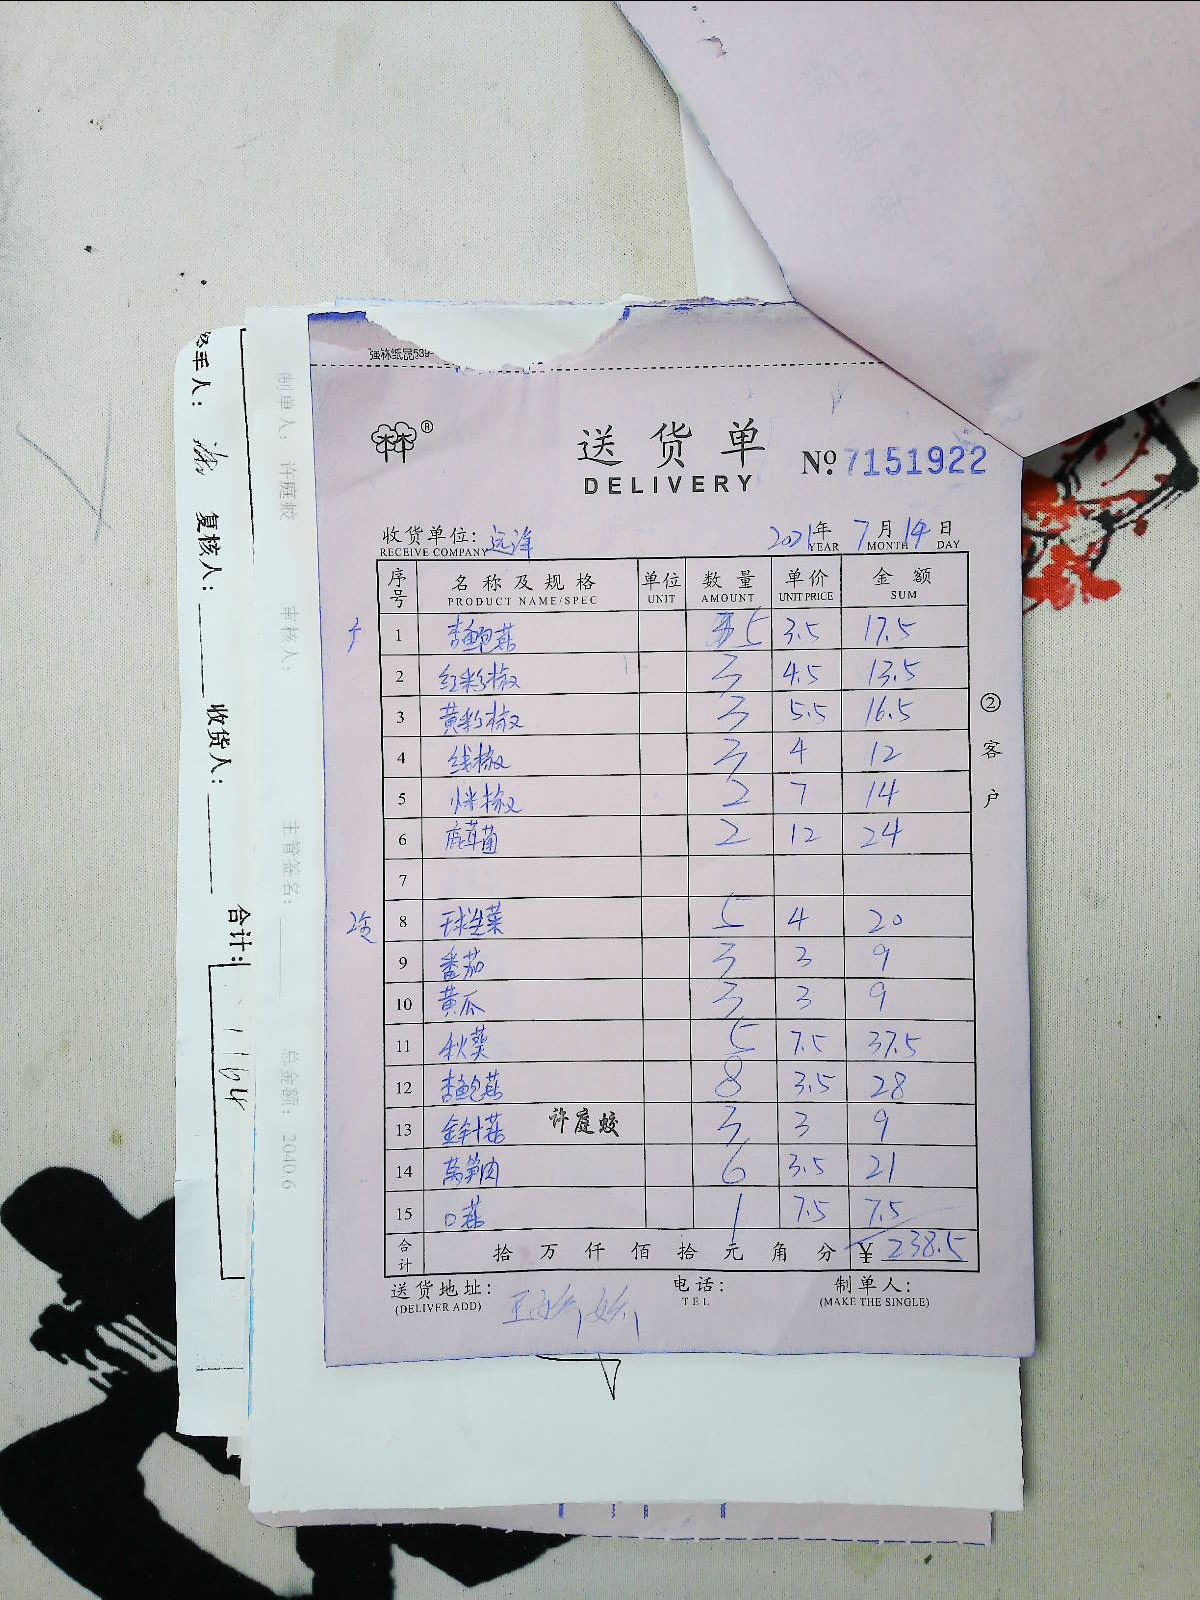 强林纸品539-
送货单
DELIVERY
No. 7151922
收货单位: 远洋 2021年 7月 14日
RECEIVE COMPANY YEAR MONTH DAY
序号 名称及规格 单位 数量 单价 金额
PRODUCT NAME/SPEC UNIT AMOUNT UNIT PRICE SUM
1 杏鲍菇 5 3.5 17.5
2 红彩椒 3 4.5 13.5
3 黄彩椒 3 5.5 16.5
4 线椒 3 4 12
5 米椒 2 7 14
6 鹿茸菌 2 12 24
7
8 球生菜 5 4 20
9 番茄 3 3 9
10 黄瓜 3 3 9
11 秋葵 5 7.5 37.5
12 杏鲍菇 8 3.5 28
13 金针菇 许庭蛟 3 3 9
14 莴笋肉 6 3.5 21
15 口菇 1 7.5 7.5
合计 拾万仟佰拾元角分 ¥ 238.5
送货地址: 电话: 制单人:
(DELIVER ADD) TEL (MAKE THE SINGLE)
②客户
制单人: 许庭蛟 审核人: 主管签名: 总金额: 2040.6
复核人: 收货人:
合计:
1164